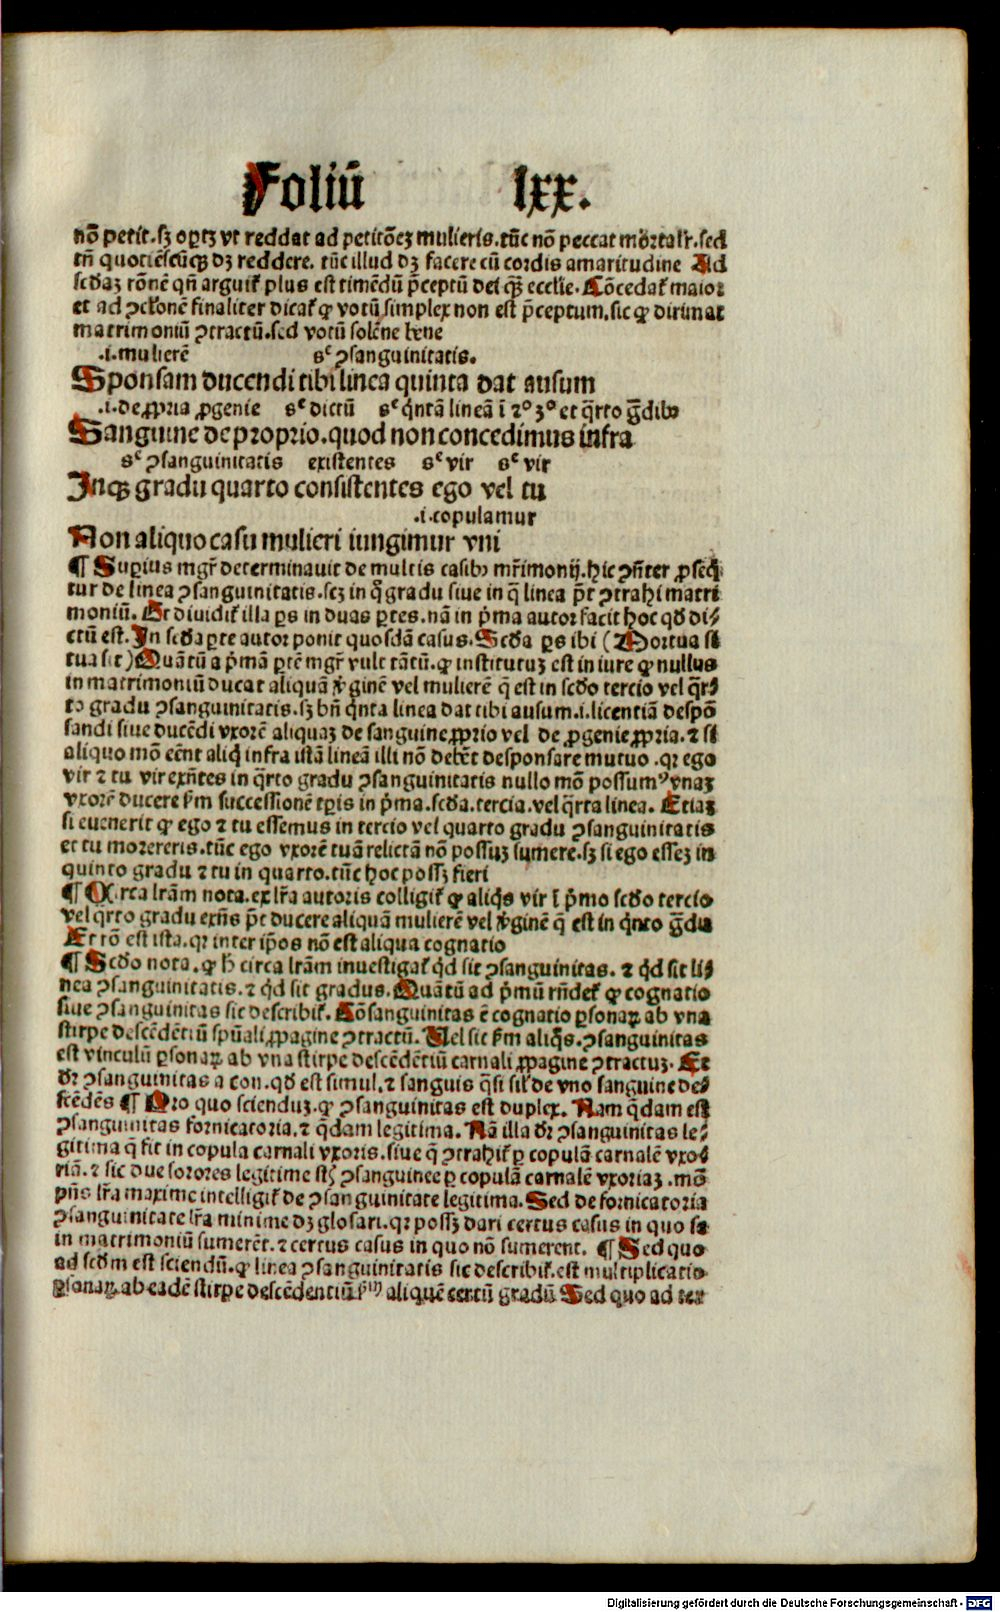 Foliū lxx.
nō petit.sꝫ oꝑtꝫ vt reddat ad petitōeꝫ mulieris.tūc nō peccat mortalr̄.sed
tn̄ quotiēscūqꝫ dꝫ reddere. tūc illud dꝫ facere cū cordis amaritudine Ad
scd̓aꝫ rōnē qn̄ arguit̄ plus est timēdū p̄ceptū dei qꝫ̄ ecclīe. Cōcedat̄ maior
et ad ꝯcl̓onē finaliter dicat̄ ꝙ votū simplex non est p̄ceptum.sic ꝙ dirimat
matrimoniū ꝯtractū.sed votū solēne bn̄e
.i.mulierē sᶜ ꝯsanguinitatis.
Sponsam ducendi tibi linea quinta dat ausum
.i.de ꝓpria ꝓgenie sᶜ dictū sᶜ q̇ntā lineā ī 2° 3° et q̄rto g̅dibꝰ
Sanguine de proprio.quod non concedimus infra
sᶜ ꝯsanguinitatis existentes sᶜ vir sᶜ vir
Inqꝫ gradu quarto consistentes ego vel tu
.i.copulamur
Non aliquo casu mulieri iungimur vni
¶ Supius mgr̄ determinauit de multis casibꝰ mr̄imonij.hic ꝯn̄ter ꝓseq̇
tur de linea ꝯsanguinitatis.scꝫ in q̊ gradu siue in q̄ linea pt̄ ꝯtrahi matri
moniū. Et diuidit̄ illa ꝑs in duas ꝑtes. nā in p̓ma autor facit hoc qd̓ di⸗
ctū est. In scd̓a ꝑte autor ponit quosdā casus. Scd̓a ꝑs ibi (Mortua si
tua sit) Quātū a p̓mā ꝑtē mgr̄ vult tātū.ꝙ institutuꝫ est in iure ꝙ nullus
in matrimoniū ducat aliquā v̓ginē vel mulierē q̄ est in scd̓o tercio vel q̄r⸗
to gradu ꝯsanguinitatis.sꝫ bn̄ q̇nta linea dat tibi ausum.i.licentiā despō
sandi siue ducēdi vxorē aliquaꝫ de sanguine ꝓprio vel de ꝓgenie ꝓpria. ⁊ si
aliquo mō eēnt aliq̇ infra istā lineā illi nō debēt desponsare mutuo .qꝛ ego
vir ⁊ tu vir exn̄tes in q̄rto gradu ꝯsanguinitatis nullo mō possumꝰ vnaꝫ
vxorē ducere ẜm successionē tꝑis in p̓ma.scd̓a.tercia.vel q̄rta linea. Etiaꝫ
si euenerit ꝙ ego ⁊ tu essemus in tercio vel quarto gradu ꝯsanguinitatis
et tu morereris.tūc ego vxorē tuā relictā nō possuꝫ sumere.sꝫ si ego esseꝫ in
quinto gradu ⁊ tu in quarto.tūc hoc possꝫ fieri
¶ Circa lr̄am nota.ex lr̄a autoris colligit̄ ꝙ aliq̇s vir ī p̓mo scd̓o tercio
vel q̄rto gradu exn̄s pt̄ ducere aliquā mulierē vel v̓ginē q̄ est in q̇nto g̅du
Et rō est ista.qꝛ inter ip̄os nō est aliqua cognatio
¶ Scd̓o nota.ꝙ h̄ circa lr̄am inuestigat̄ q̇d sit ꝯsanguinitas. ⁊ q̇d sit li⸗
nea ꝯsanguinitatis.⁊ q̇d sit gradus. Quātū ad p̓mū rn̄det̄ ꝙ cognatio
siue ꝯsanguinitas sic describit̄. Cōsanguinitas ē cognatio ꝑsonaꝝ ab vna
stirpe descēdētiū spūali ꝓpagine ꝯtractū. Uel sic ẜm aliq̇s.ꝯsanguinitas
est vinculū ꝑsonaꝝ ab vna stirpe descēdētiū carnali ꝓpagine ꝯtractuꝫ. Et
dr̄ ꝯsanguinitas a con.qd̓ est simul.⁊ sanguis q̄si sil̓ de vno sanguine de⸗
scēdēs ¶ Pro quo sciendūꝫ.ꝙ ꝯsanguinitas est duplex. Nam q̄dam est
ꝯsanguinitas fornicatoria.⁊ q̄dam legitima. Nā illa dr̄ ꝯsanguinitas le⸗
gitima q̄ fit in copula carnali vxoris.siue q̄ ꝯtrahit̄ ꝑ copulā carnalē vxo⸗
riā.⁊ sic due sorores legitime st̄ ꝯsanguinee ꝑ copulā carnalē vxoriaꝫ .mō
pn̄s lr̄a maxime intelligit̄ de ꝯsanguinitate legitima. Sed de fornicatoria
ꝯsanguinitate lr̄a minime dꝫ glosari.qꝛ possꝫ dari certus casus in quo se
in matrimoniū sumerēt.⁊ certus casus in quo nō sumerent. ¶ Sed quo
ad scd̓m est sciendū.ꝙ linea ꝯsanguinitatis sic describit̄.est multiplicatio
ꝑsonaꝝ.ab eadē stirpe descēdentiū ẜm aliquē certū gradū Sed quo ad ter
Digitalisierung gefördert durch die Deutsche Forschungsgemeinschaft - DFG